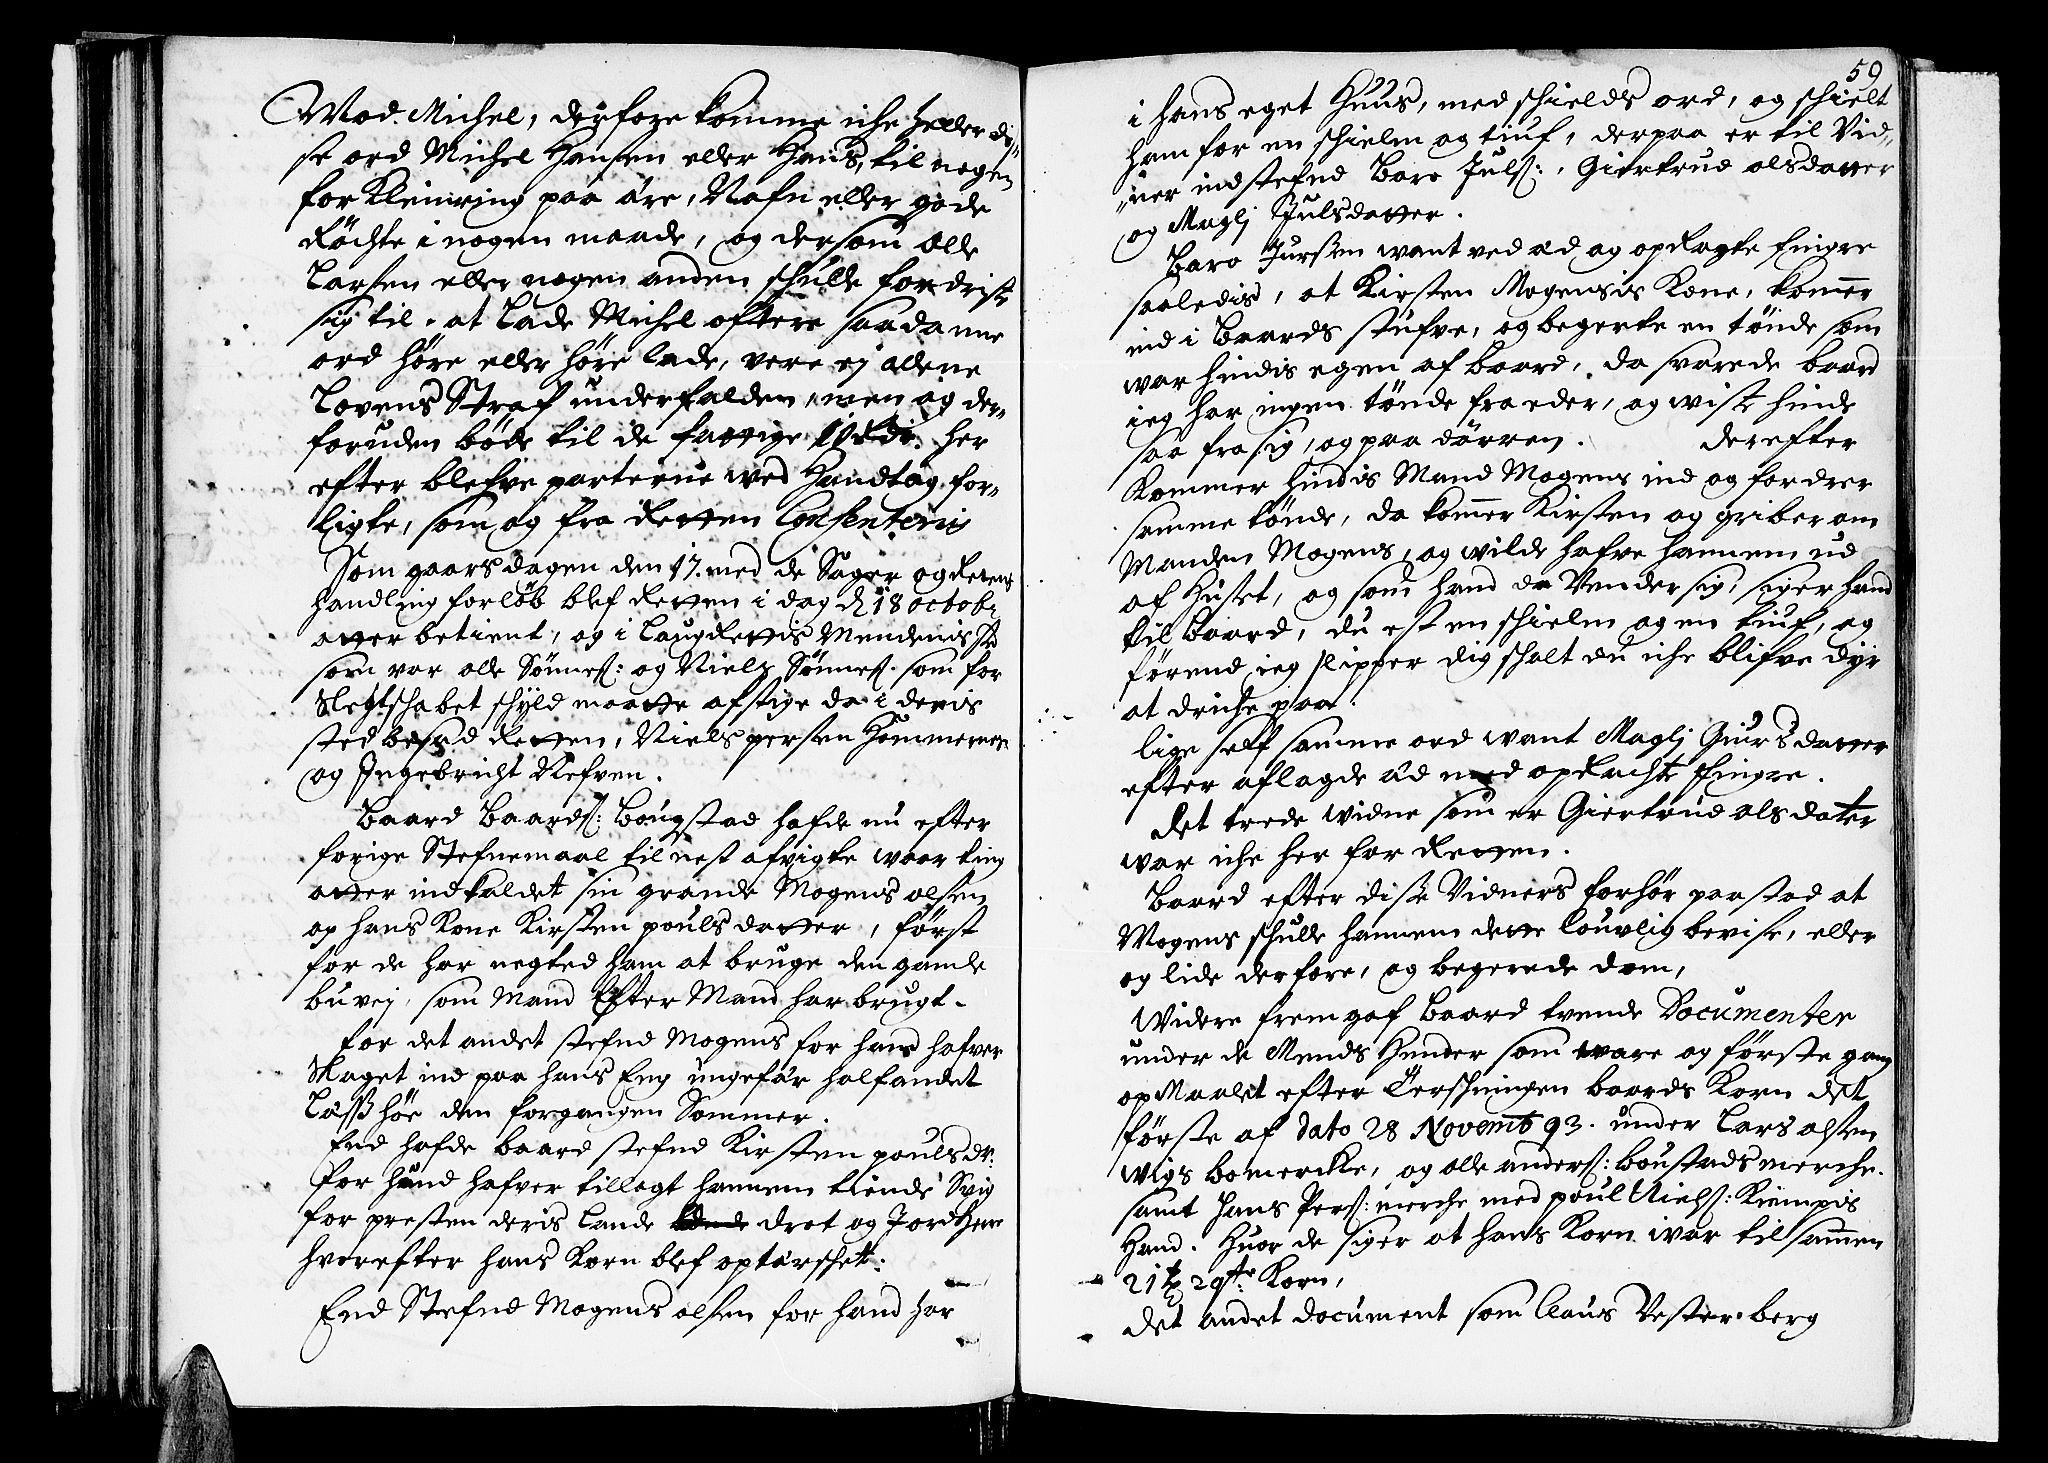 Mod Michel, derfore komme iche heller dis„
se ord Michel Hansen eller Hans, til nogen
forkleinring paa ære, Nafn eller gode
Røchte i nogen maade, og dersom Olle
Larsen eller nogen anden schulle fordriste
sig til at lade Michel oftere saadanne
ord høre eller høre lade, være ej allene
Lovens Straf underfalden, men og der„
foruden bøde til de fattige her
efter blefve parterne wed Handtag for„
ligte, som og fra Retten Consenteris
Som gaarsdagen den 17. med de Sager og Retens
handling forløb blef Retten i dag d 18 octob:
atter betient, og i Laugrettis Mendenis sted
som var olle Sønnes: og Niels Sønnes. som for
Slegtschabet schyld maatte afstige da i deris
sted besad Retten, Niels persen Hommernes
og Ingebricht Refven.
Baard Baards: Bougstad hafde nu efter
forige Stefnemaal til nest afvigte waar ting
atter indkaldet sin grande Mogens olsen
og hans Kone Kirsten pouls datter, først
for de har negted ham at bruge den gamle
buvej, som Mand Efter Mand har brugt.
for det andet stefnd Mogens for hand hafver
Slaget ind paa hans Eng ungefær halfandet
Læss høe den forgangen Sommer.
End hafde baard stefnd Kirsten pouls dr:
for hund hafver tillagt hannem tiende Svig
for presten deris lande drot og Jordherre
hvorefter hans Korn blef optærschet:
End Stefnd Mogens olsen for hand har
59
i hans eget Huus, med schields ord, og schielt
ham for en schielm og tiuf, derpaa er til Vid„
„ner indstefnd Baro Juls:, Giertrud olsdatter
og Magli Siulsdatter.
Baro Jursen want ved æd og opragte fingre
saaledis, at Kirsten Mogensis Kone, kommer
ind i Baards stufve, og begerte en tønde som
war hindis egen af baard, da svarede baard
ieg har ingen tønde fra eder, og wiste hinde
saa fra sig, og paa dørren. derefter
Kommer hindis Mand Mogens ind og fordrer
samme tønde, da kommer Kirsten og griber om
Manden Mogens, og wilde hafve hannem ud
af Huset, og som hand da Vender sig, siger hand
til Baard, du est en schielm og en tiuf, og
førend ieg slipper dig schalt du iche blifve dyr
at driche paa.
lige self samme ord want Magli Giurs datter
efter aflagde æd med opRachte fingre.
det trede widne som er Giertrud olsdater
war iche her for Retten.
Baard efter disse Vidners forhør paastod at
Mogens schulle hannem dette louvlig bevise, eller
og lide derfore, og begerede dom,
Widere fremgaf Baard tvende Documenter
under de Mends Hender som ware og første gang
op Maalet efter Terschningen baards Korn det
første af dato 28 Novemb 93. under Lars olsen
wigs bomercke, og olle anders: boustads merche.
samt hans Pers: merche med poul Niels: Kiempis
Hand. Huor de siger at hans Korn war til sammen
21 tø 29tr. Korn,
det andet document som Claus Vesterberg